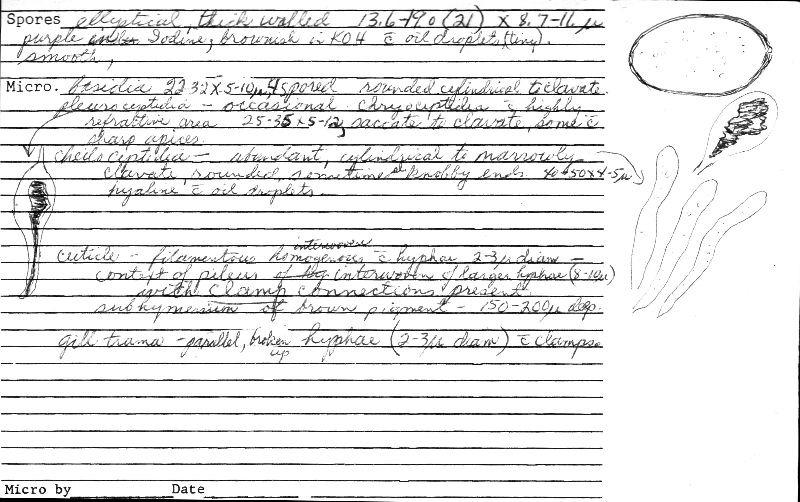 Spores elliptical, thick walled 13.6-19.0 (21) x 8.7-16 µ
purple in Iodine; brownish in KOH c̄ oil droplets (tiny).
smooth,
Micro. basidia 22-32 x 5-10µ, 4 spored rounded cylindrical to clavate.
pleurocystidia - occasional chrysocystidia c̄ highly
refractive area 25-35 x 5-12, saccate to clavate, some c̄
sharp apices.
cheilocystidia - abundant, cylindrical to narrowly
clavate, rounded, sometimes knobby ends. 40-50 x 4-5µ
hyaline c̄ oil droplets.
interwoven
cuticle - filamentous homogenous c̄ hyphae 2-3µ diam -
context of pileus interwoven of larger hyphae (8-10µ)
with clamp connections present
subhymenium of brown pigment - 150-200µ deep.
gill trama - parallel, broken hyphae (2-3µ diam) c̄ clamps.
up
Micro by Date